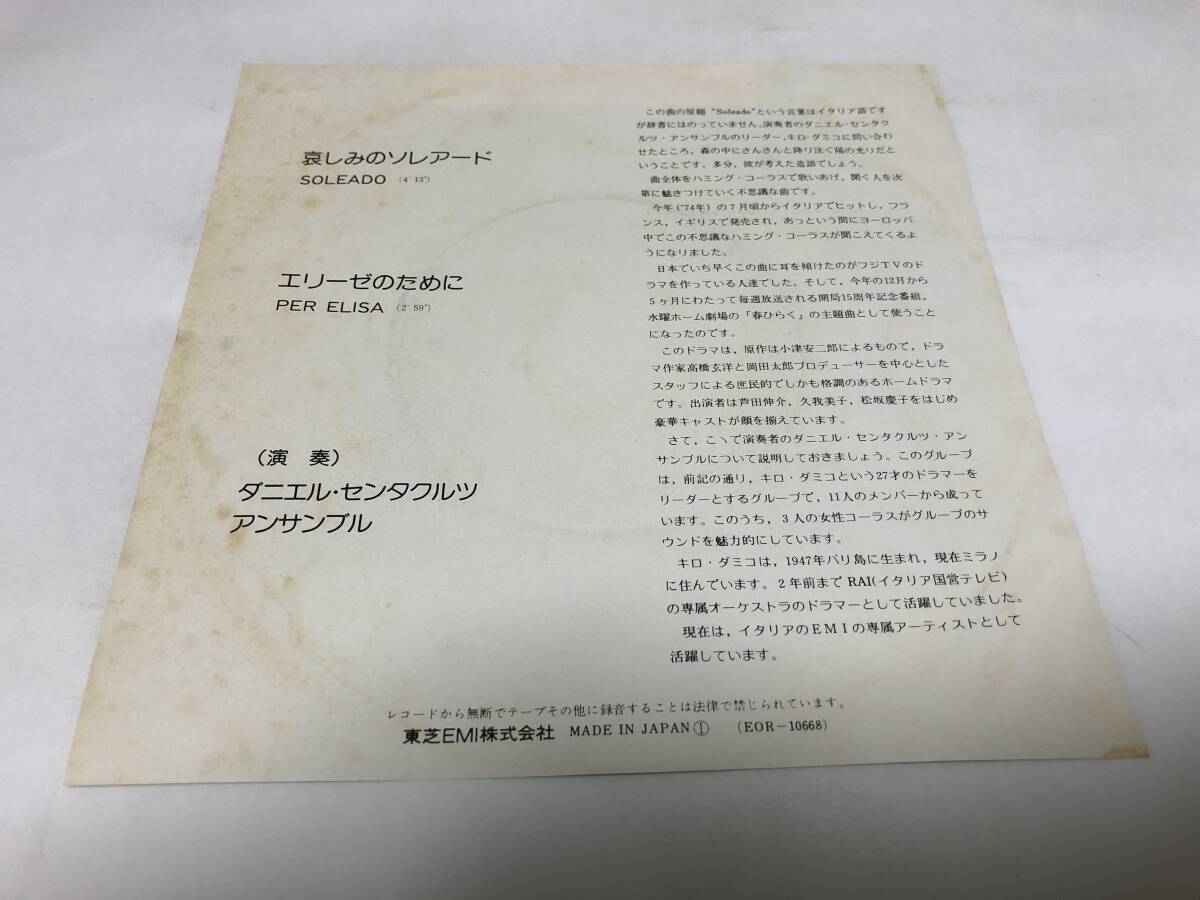 哀しみのソレアード
SOLEADO (4′13″)
エリーゼのために
PER ELISA (2′59″)
(演 奏)
ダニエル・センタクルツ
アンサンブル
この曲の原題“Soleado”という言葉はイタリア語です
が辞書にはのっていません。演奏者のダニエル・センタク
ルツ・アンサンブルのリーダー，キロ・ダミコに問い合わ
せたところ，森の中にさんさんと降り注ぐ陽の光りだと
いうことです。多分，彼が考えた造語でしょう。
曲全体をハミング・コーラスで歌いあげ，聞く人を次
第に魅きつけていく不思議な曲です。
今年('74年)の7月頃からイタリアでヒットし，フラ
ンス，イギリスで発売され，あっという間にヨーロッパ
中でこの不思議なハミング・コーラスが聞こえてくるよ
うになりました。
日本でいち早くこの曲に耳を傾けたのがフジTVのド
ラマを作っている人達でした。そして，今年の12月から
5ヶ月にわたって毎週放送される開局15周年記念番組，
水曜ホーム劇場の「春ひらく」の主題曲として使うこと
になったのです。
このドラマは，原作は小津安二郎によるもので，ドラ
マ作家高橋玄洋と岡田太郎プロデューサーを中心とした
スタッフによる庶民的でしかも格調のあるホームドラマ
です。出演者は芦田伸介，久我美子，松坂慶子をはじめ
豪華キャストが顔を揃えています。
さて，こヽで演奏者のダニエル・センタクルツ・アン
サンブルについて説明しておきましょう。このグループ
は，前記の通り，キロ・ダミコという27才のドラマーを
リーダーとするグループで，11人のメンバーから成って
います。このうち，3人の女性コーラスがグループのサ
ウンドを魅力的にしています。
キロ・ダミコは，1947年バリ島に生まれ，現在ミラノ
に住んでいます。2年前までRAI(イタリア国営テレビ)
の専属オーケストラのドラマーとして活躍していました。
現在は，イタリアのEMIの専属アーティストとして
活躍しています。
レコードから無断でテープその他に録音することは法律で禁じられています。
東芝EMI株式会社 MADE IN JAPAN Ⓘ (EOR－10668)